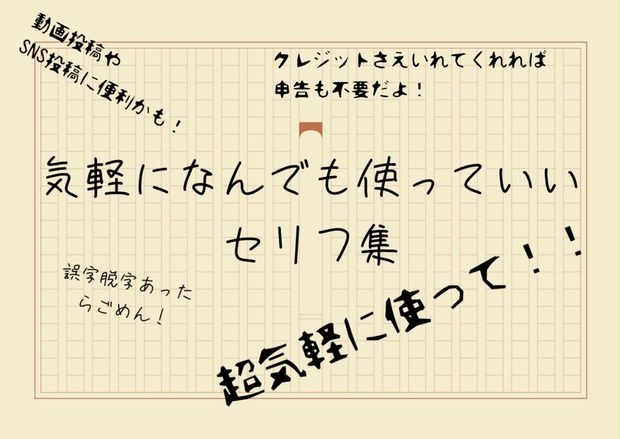 動画投稿や
SNS投稿に便利かも!
クレジットさえいれてくれれば
申告も不要だよ!
気軽になんでも使っていい
セリフ集
誤字脱字あった
らごめん!
超気軽に使って!!